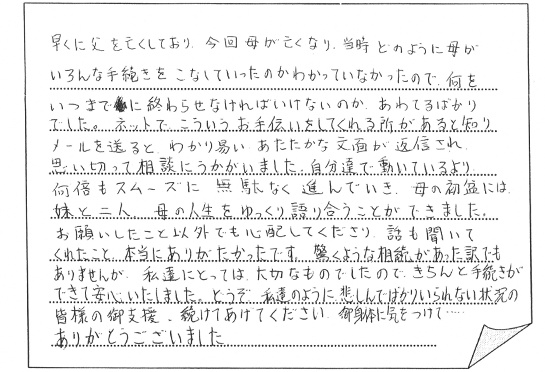 早くに父を亡くしており、今回母が亡くなり、当時どのように母が
いろんな手続きをこなしていったのかわかっていなかったので、何を
いつまでに終わらせなければいけないのか、あわてるばかり
でした。ネットで、こういうお手伝いをしてくれる所があると知り
メールを送ると、わかり易いあたたかな文面が返信され、
思い切って相談にうかがいました。自分達で動いているより
何倍もスムーズに無駄なく進んでいき、母の初盆には、
妹と二人、母の人生をゆっくり語り合うことができました。
お願いしたこと以外でも心配してくださり、話も聞いて
くれたこと、本当にありがたかったです。驚くような相続があった訳でも
ありませんが、私達にとっては、大切なものでしたので、きちんと手続きが
できて安心いたしました。どうぞ、私達のように悲しんでばかりいられない状況の
皆様の御支援、続けてあげてください。御身体に気をつけて……
ありがとうございました